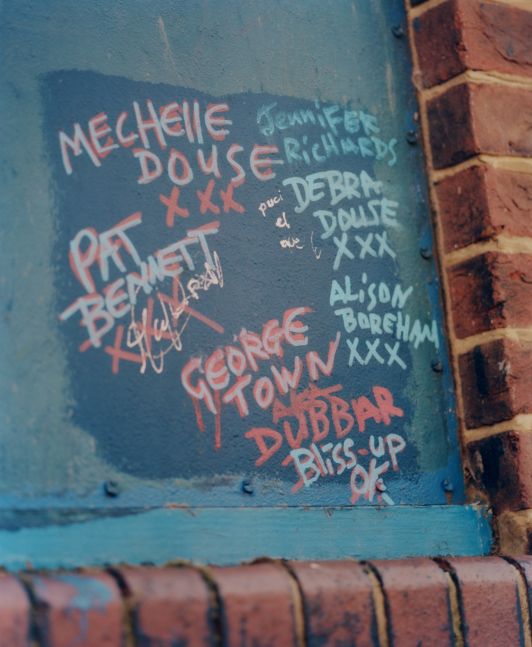 MECHELLE
DOUSE
XXX
JENNiFER
RiCHARDS
DEBRA
DOUSE
XXX
PAT
BENNETT
XX
ALiSON
BOREHAM
XXX
GEORGE
TOWN
DUBBAR
Bliss-up
OK